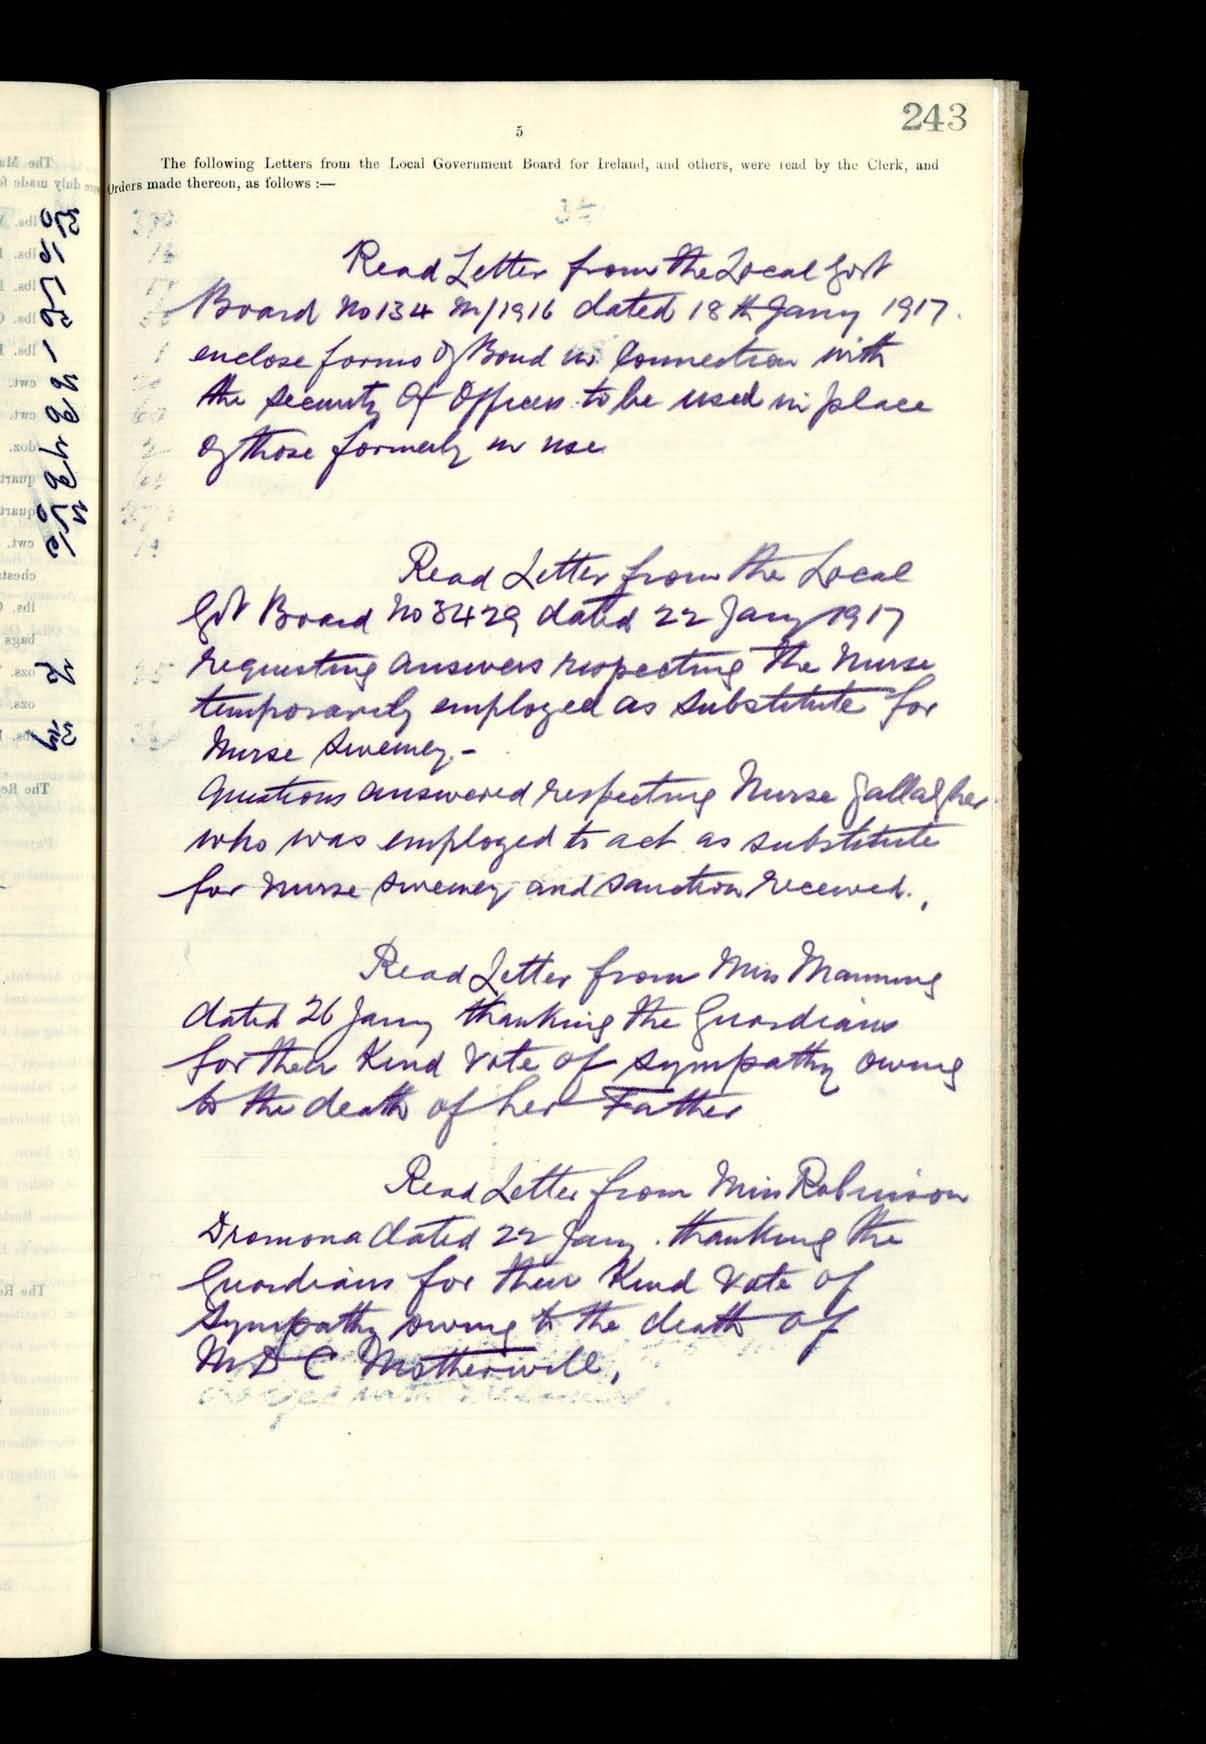 243
5
The following Letters from the Local Government Board for Ireland, and others, were read by the Clerk, and
Orders made thereon, as follows :—
Read Letter from the Local Govt
Board No 134 M/1916 dated 18th Jany 1917.
enclose forms of Bond in Connection with
the Security of Officers to be used in place
of those formerly in use
Read Letter from the Local
Govt Board No 3429 dated 22 Jany 1917
requesting answers respecting the Nurse
temporarily employed as substitute for
Nurse Sweeney.-
Questions answered respecting Nurse Gallagher
who was employed to act as substitute
for Nurse Sweeney and sanction received.
Read Letter from Miss Manning
dated 26 Jany thanking the Guardians
for their Kind Vote of sympathy owing
to the death of her Father
Read Letter from Miss Robinson
Dromona dated 22 Jany. thanking the
Guardians for their Kind Vote of
Sympathy owing to the death of
Mr D C Motherwill,